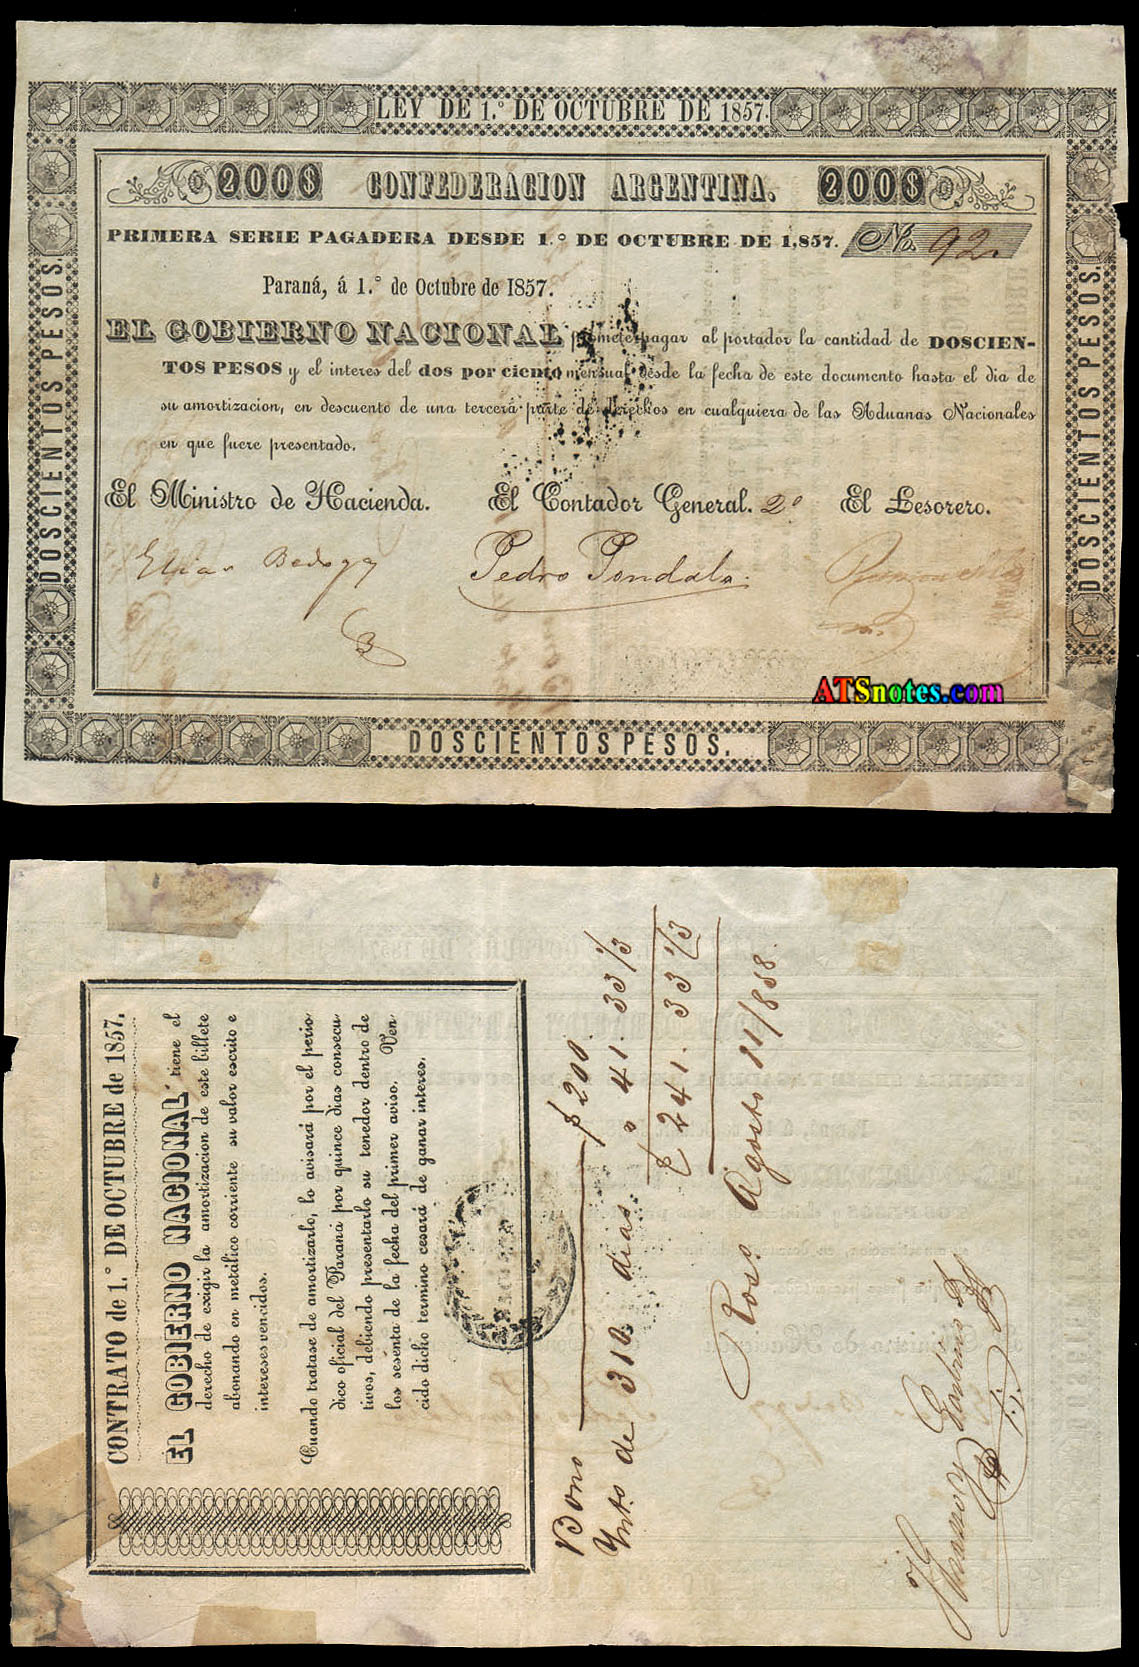 LEY DE 1.° DE OCTUBRE DE 1857.
200$ CONFEDERACION ARGENTINA. 200$
PRIMERA SERIE PAGADERA DESDE 1.° DE OCTUBRE DE 1,857. No. 92.
Paraná, á 1.° de Octubre de 1857.
EL GOBIERNO NACIONAL promete pagar al portador la cantidad de DOSCIEN-
TOS PESOS y el interes del dos por ciento mensual desde la fecha de este documento hasta el dia de
su amortizacion, en descuento de una tercera parte de derechos en cualquiera de las Aduanas Nacionales
en que fuere presentado.
El Ministro de Hacienda. El Contador General. 2° El Tesorero.
Elias Bedoya Pedro Pondal
DOSCIENTOS PESOS.
DOSCIENTOS PESOS.
DOSCIENTOS PESOS.
ATSnotes.com
CONTRATO de 1.° DE OCTUBRE de 1857.
EL GOBIERNO NACIONAL tiene el
derecho de exigir la amortizacion de este billete
abonando en metálico corriente su valor escrito e
intereses vencidos.
Cuando tratase de amortizarlo, lo avisará por el perio
dico oficial del Paraná por quince dias consecu
tivos, debiendo presentarlo su tenedor dentro de
los sesenta de la fecha del primer aviso. Ven
cido dicho termino cesará de ganar interes.
Bono $ 200.
Ynts. de 310. dias. " 41. 33 1/3
$ 241. 33 1/3
Ros.o Agosto 11/858.